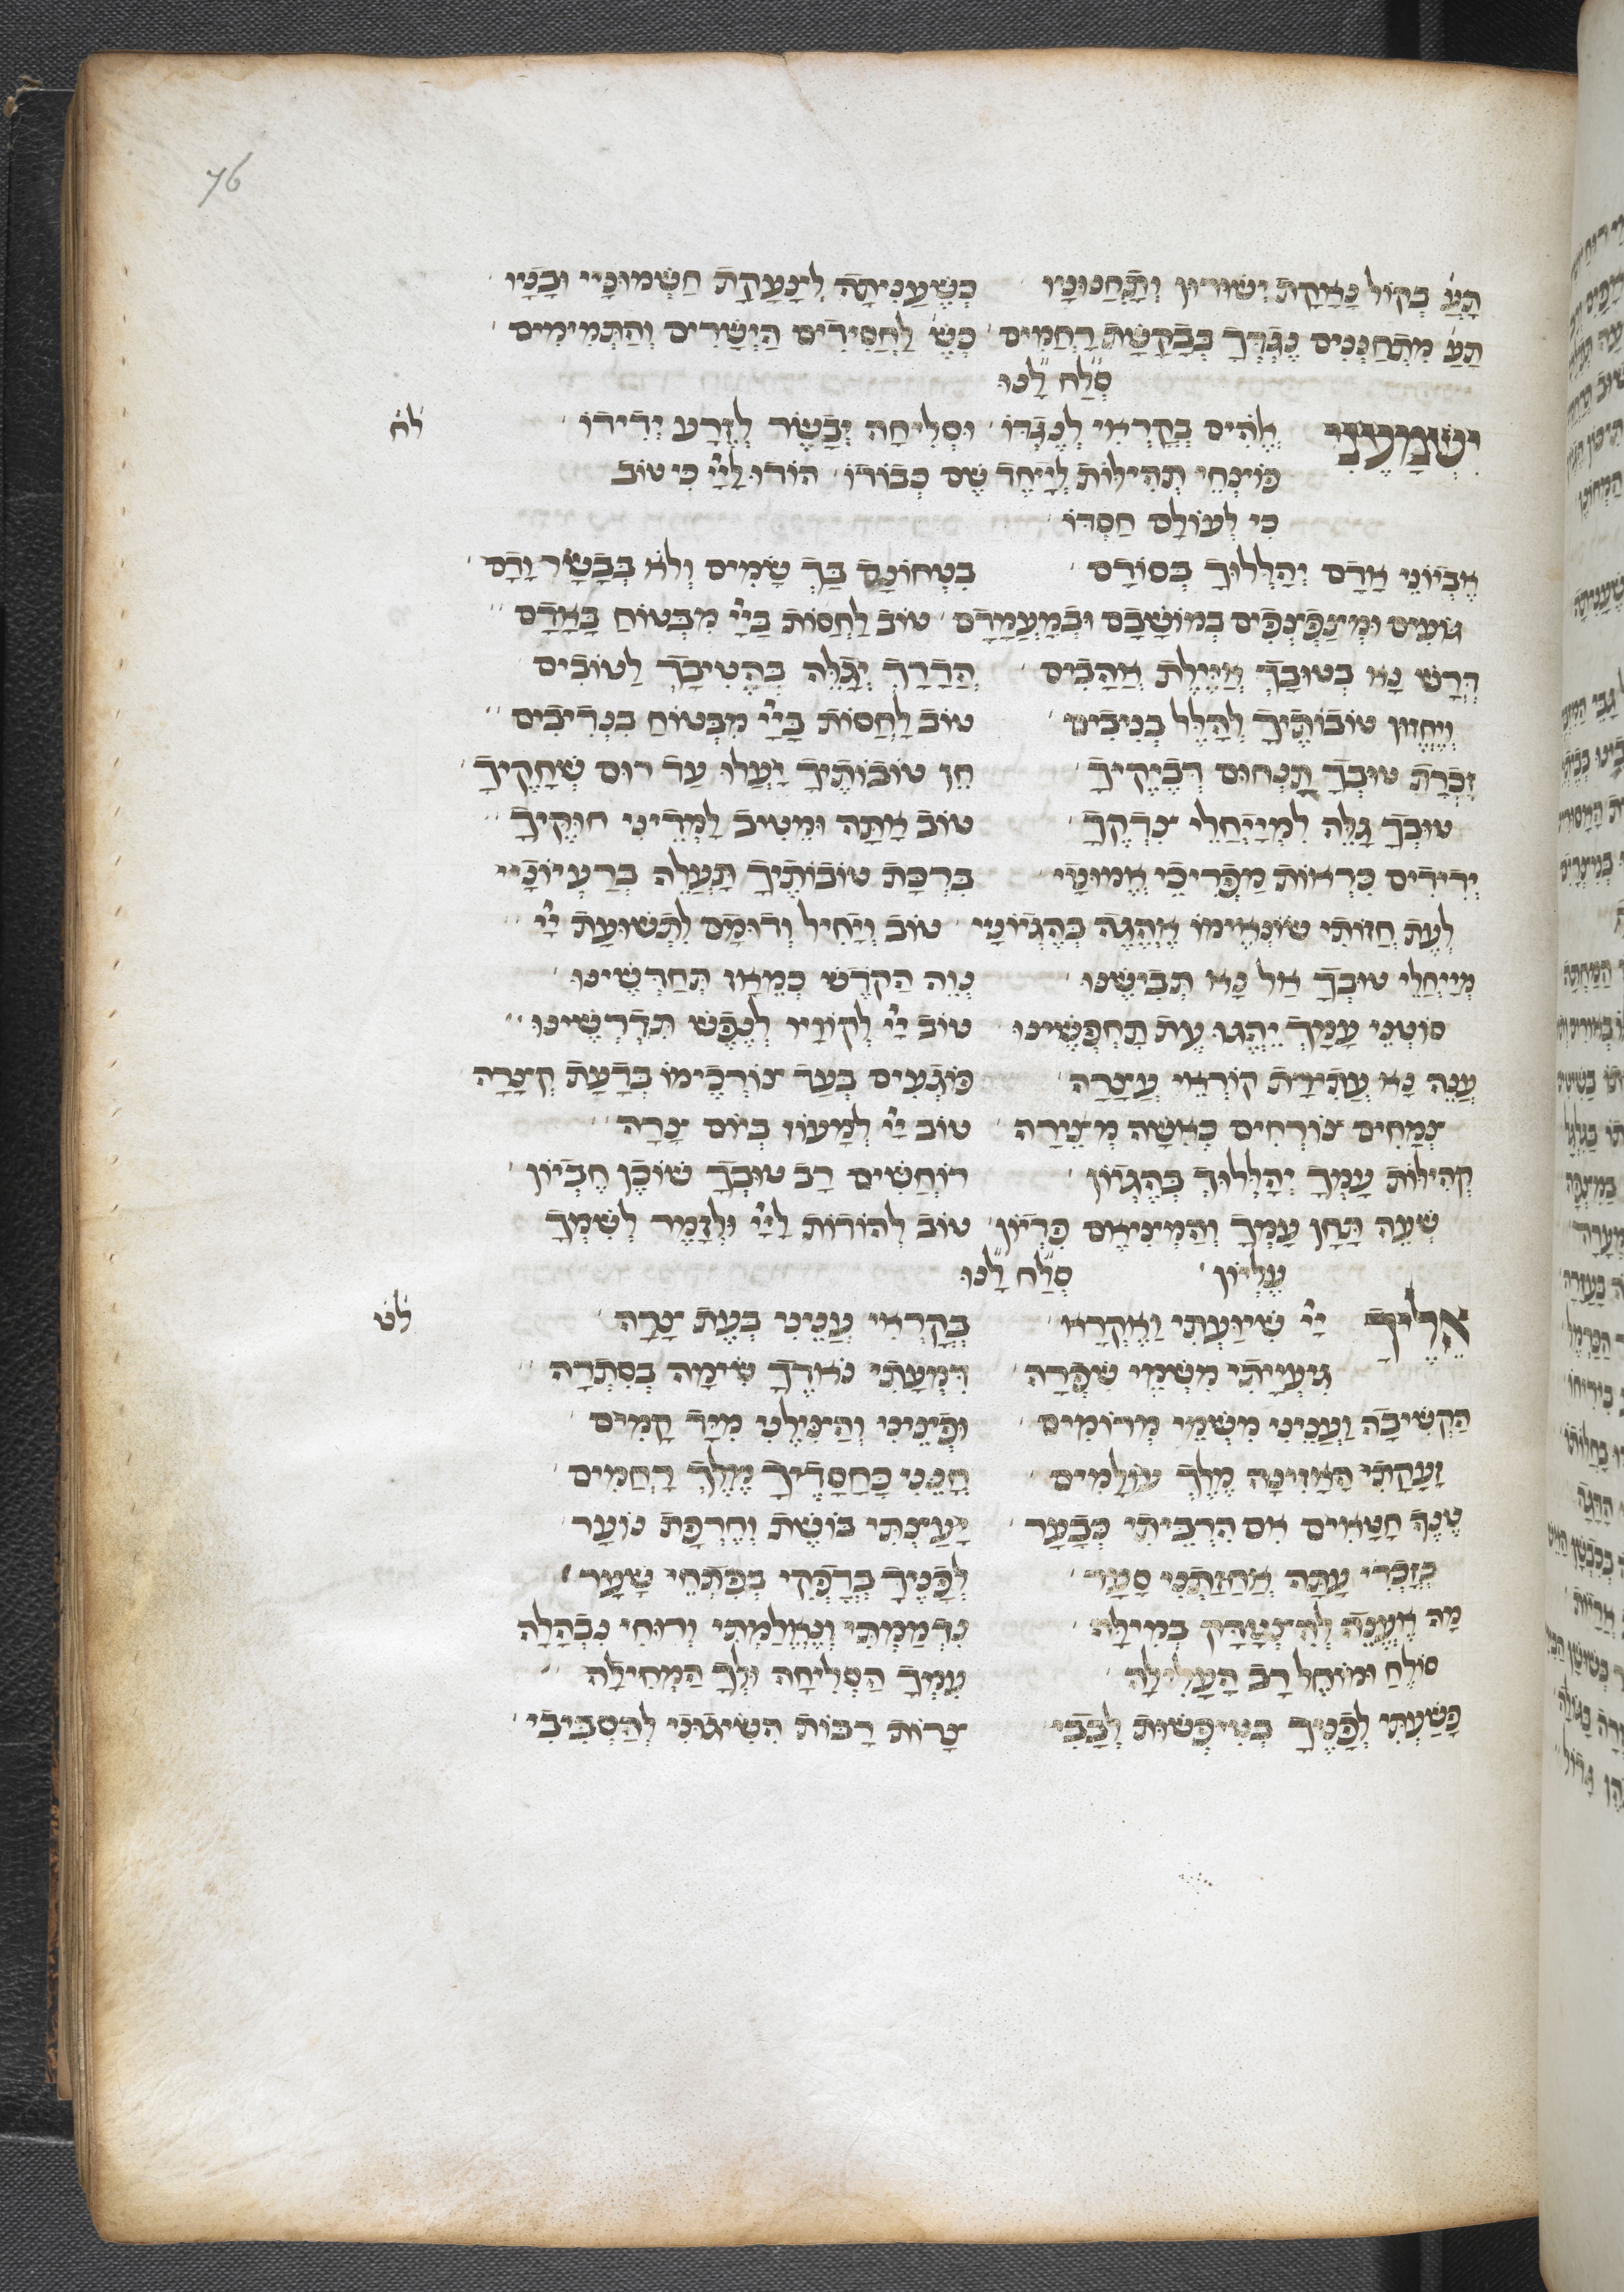 76
תע' בקול נאקת ישורון ותחנוניו כשעניתה לצעקת חשמוניי ובניו
תע' מתחננים נגדך בבקשת רחמים כש' לחסידים הישרים והתמימים
סלח לנו
ישמיעני אלהים בקראי לנגדו וסליחה יבשר לזרע ידידו לח
פוצחי תהילות לייחד שם כבודו הודו ליי כי טוב
כי לעולם חסדו
אביוני אדם יהללוך בסודם בטחונם בך שמים ולא בבשר ודם
געים ומצפצפים במושבם ובמעמדם טוב לחסות ביי מבטוח באדם
דרש נא בטובך איילת אהבים הדרך יגלה בהטיבך לטובים
ויחזון טובותיך להלל בניבים טוב לחסות ביי מבטוח בנדיבים
זכרת טובך תנחום דביקיך חין טובותיך יעלו עד רום שחקיך
טובך גלה למייחלי צדקך טוב אתה ומטיב למדיני חוקיך
ידידים כראות מפריכי ברכת טובותיך תעלה ברעיוניי
לעת חזותי שונאימו אהגה בהגיוניי טוב ויחיל ודומם לתשועת יי
מייחלי טובך אל נא תביישנו נוה הקדש כמאז תחדשינו
סוטני עמך יהגו עת תחפשינו טוב יי לקוויו לנפש תדרשינו
ענה נא עתירת קוראי עצרה פוגעים בעד צורכימו בדעת קצרה
צמחים צורחים כאשה מצירה טוב יי למעוז ביום צרה
קהילות עמך יהללוך בהגיון רוחשים רב טובך שוכן חביון
שעה בחן עמך והמציאם פדיון טוב להודות ליי ולזמר לשמך
עליון סלח לנו
אליך יי שיועתי ואקרא בקראי ענני בעת צרה לט
געייתי משמי שפרה דמעתי נאדך שימה בסתרה
הקשיבה ועניני משמי מרומים ופציני והצילני מיד קמים
זעקתי האזינה מלך עולמים חנני כחסדיך מלך רחמים
טנף חטאים אם הרביתי כבער יעצתי בושת וחרפת נוער
כזכרי עתה אחזתני סער לפניך בדפקי בפתחי שער
מה אענה להצטדק במילה נדממתי ונאלמתי ורוחי נבהלה
סולח ומוחל רב העלילה עמך הסליחה ולך המחילה
פשעתי לפניך בטיפשות לבבי צרות רבות השיגוני להסביבי